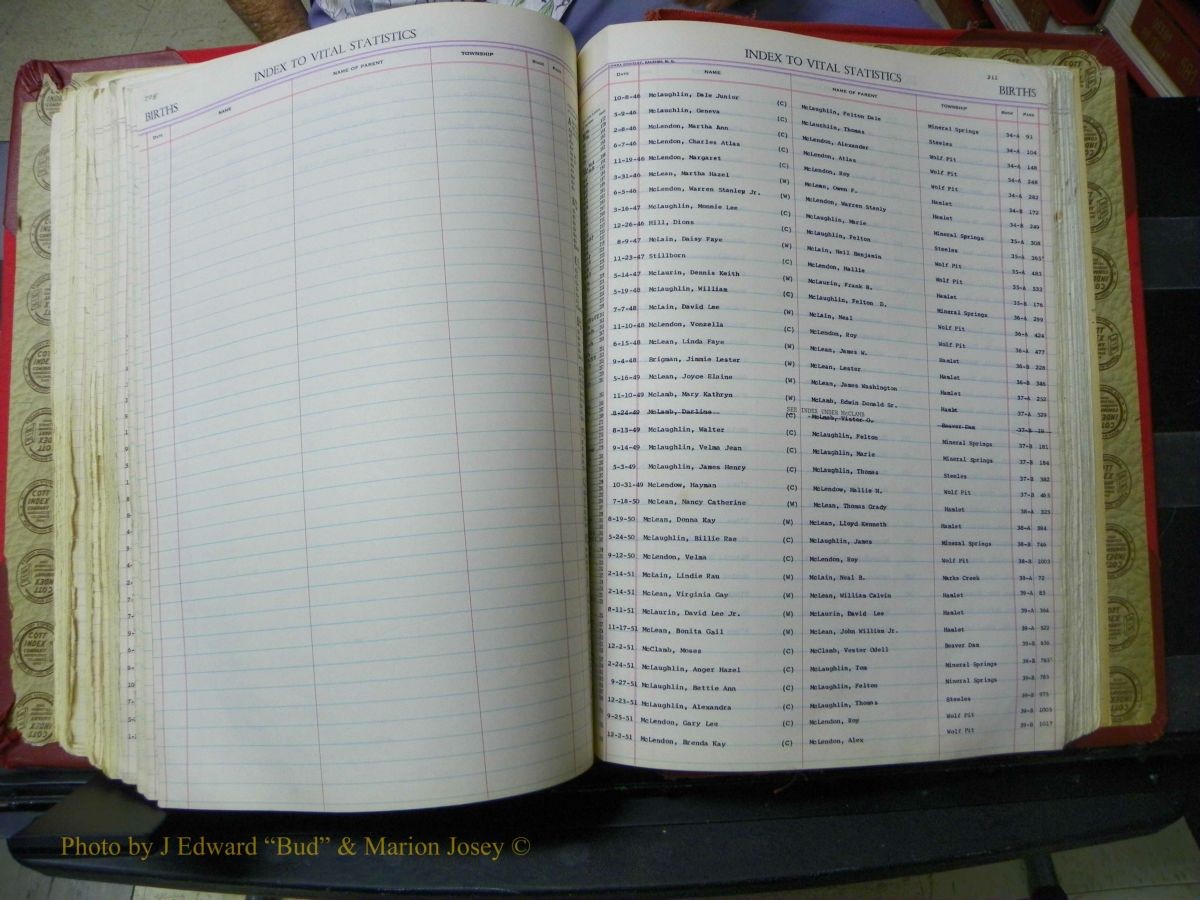 INDEX TO VITAL STATISTICS
BIRTHS
Date NAME NAME OF PARENT TOWNSHIP BOOK PAGE
INDEX TO VITAL STATISTICS 311
BIRTHS
Date NAME NAME OF PARENT TOWNSHIP BOOK PAGE
10-8-46 McLaughlin, Dale Junior (C) McLaughlin, Felton Dale Mineral Springs 34-A 91
5-9-46 McLauchlin, Geneva (C) McLauchlin, Thomas Steeles 34-A 104
2-8-46 McLendon, Martha Ann (C) McLendon, Alexander Wolf Pit 34-A 148
6-7-46 McLendon, Charles Atlas (C) McLendon, Atlas Wolf Pit 34-A 248
11-19-46 McLendon, Margaret (C) McLendon, Roy Wolf Pit 34-A 282
3-31-46 McLean, Martha Hazel (W) McLean, Owen F. Hamlet 34-B 172
6-5-46 McLendon, Warren Stanley Jr. (W) McLendon, Warren Stanly Hamlet 34-B 249
3-16-47 McLaughlin, Monnie Lee (C) McLaughlin, Marie Mineral Springs 35-A 308
12-26-46 Hill, Dions (C) McLaughlin, Felton Steeles 35-A 365
8-9-47 McLain, Daisy Faye (W) McLain, Neil Benjamin Wolf Pit 35-A 485
11-23-47 Stillborn (C) McLendon, Hallie Wolf Pit 35-A 532
5-14-47 McLaurin, Dennis Keith (W) McLaurin, Frank B. Hamlet 35-B 176
5-19-48 McLaughlin, William (C) McLaughlin, Felton D. Mineral Springs 36-A 299
7-7-48 McLain, David Lee (W) McLain, Neal Wolf Pit 36-A 424
11-10-48 McLendon, Vonzella (C) McLendon, Roy Wolf Pit 36-A 477
6-15-48 McLean, Linda Faye (W) McLean, James W. Hamlet 36-B 228
9-4-48 Brigman, Jimmie Lester (W) McLean, Lester Hamlet 36-B 346
5-16-49 McLean, Joyce Elaine (W) McLean, James Washington Hamlet 37-A 252
11-10-49 McLamb, Mary Kathryn (W) McLamb, Edwin Donald Sr. Hamlet 37-A 529
SEE INDEX UNDER McCLAMB
8-24-49 McLamb, Darline (C) McLamb, Vister O. Beaver Dam 37-B
8-13-49 McLaughlin, Walter (C) McLaughlin, Felton Mineral Springs 37-B 181
9-14-49 McLaughlin, Velma Jean (C) McLaughlin, Marie Mineral Springs 37-B 184
5-3-49 McLaughlin, James Henry (C) McLaughlin, Thomas Steeles 37-B 382
10-31-49 McLendow, Hayman (C) McLendow, Hallie H. Wolf Pit 37-B 403
7-18-50 McLean, Nancy Catherine (W) McLean, Thomas Grady Hamlet 38-A 325
8-19-50 McLean, Donna Kay (W) McLean, Lloyd Kenneth Hamlet 38-A 394
5-24-50 McLaughlin, Billie Rae (C) McLaughlin, James Mineral Springs 38-B 746
9-12-50 McLendon, Velma (C) McLendon, Roy Wolf Pit 38-B 1003
2-14-51 McLain, Lindie Rau (W) McLain, Neal B. Marks Creek 39-A 72
2-14-51 McLean, Virginia Gay (W) McLean, William Calvin Hamlet 39-A 83
8-11-51 McLaurin, David Lee Jr. (W) McLaurin, David Lee Hamlet 39-A 364
11-17-51 McLean, Bonita Gail (W) McLean, John William Jr. Hamlet 39-A 522
12-2-51 McClamb, Moses (C) McClamb, Vester Odell Beaver Dam 39-B 636
2-24-51 McLaughlin, Anger Hazel (C) McLaughlin, Tom Mineral Springs 39-B 765
9-27-51 McLaughlin, Bettie Ann (C) McLaughlin, Felton Mineral Springs 39-B 785
12-23-51 McLaughlin, Alexandra (C) McLaughlin, Thomas Steeles 39-B 975
9-25-51 McLendon, Gary Lee (C) McLendon, Roy Wolf Pit 39-B 1005
12-2-51 McLendon, Brenda Kay (C) McLendon, Alex Wolf Pit 39-B 1017
COTT INDEX COMPANY
Photo by J Edward “Bud” & Marion Josey ©